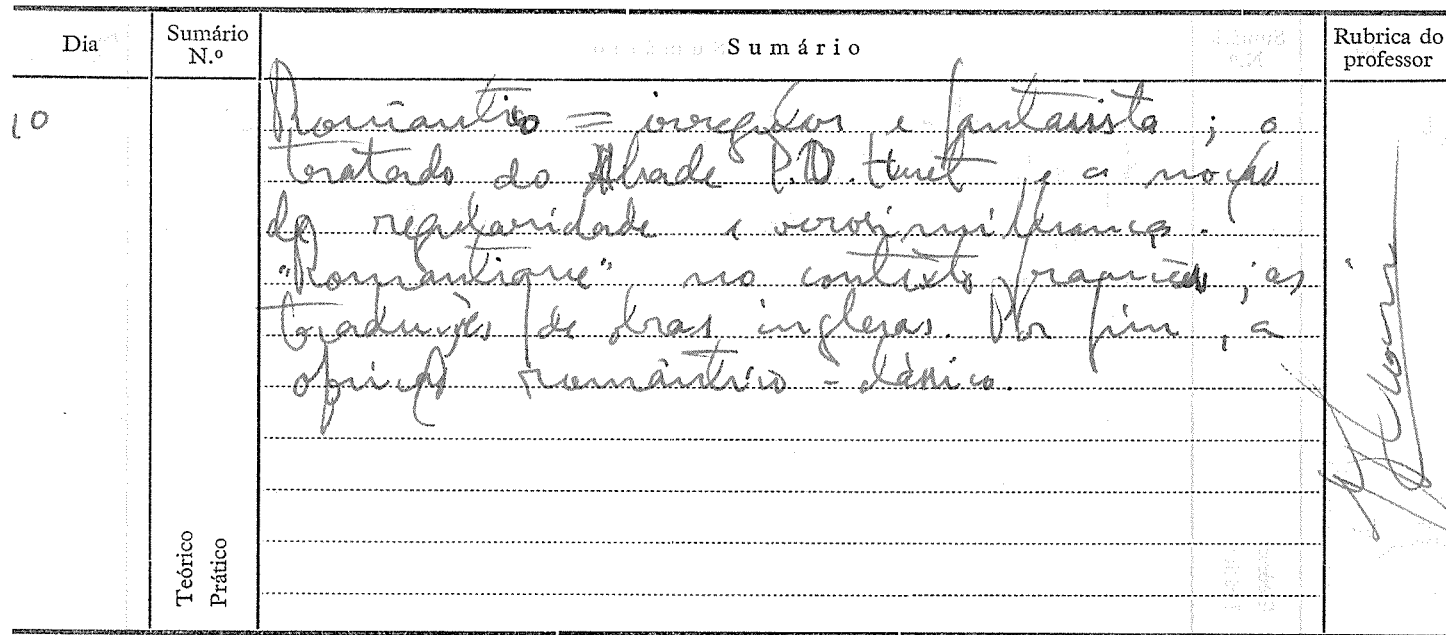 Dia
Sumário N.º
Sumário
Rubrica do professor
10
Romântico = irregular e fantasista; o
tratado do Abade P.D. Huet e a noção
de regularidade e verosimilhança.
"Romantique" no contexto francês; as
traduções de obras inglesas. Por fim, a
opinião romântico-clássico.
Teórico
Prático